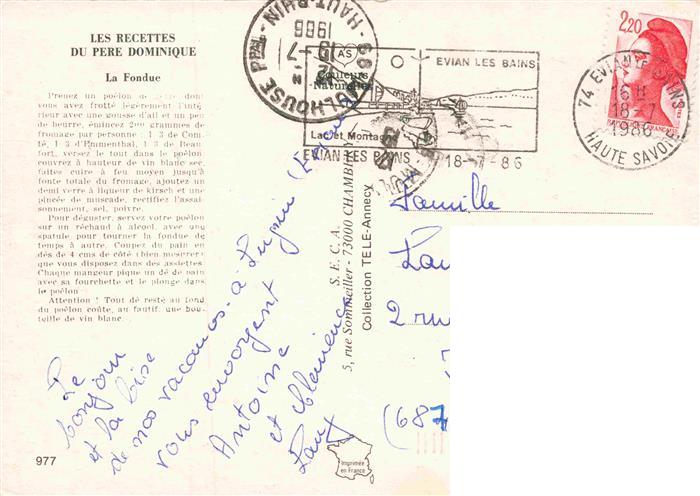 LES RECETTES
DU PERE DOMINIQUE
La Fondue
Prenez un poêlon de terre dont
vous avez frotté légèrement l'inté
rieur avec une gousse d'ail et un peu
de beurre, émincez 200 grammes de
fromage par personne : 1/3 de Com-
té, 1/3 d'Emmenthal, 1/3 de Beau
fort, versez le tout dans le poêlon
couvrez à hauteur de vin blanc sec,
faites cuire à feu moyen jusqu'à
fonte totale du fromage, ajoutez un
demi verre à liqueur de kirsch et une
pincée de muscade, rectifiez l'assai-
sonnement, sel, poivre.
Pour déguster, servez votre poêlon
sur un réchaud à alcool, avec une
spatule pour tourner la fondue de
temps à autre. Coupez du pain en
dés de 4 cms de côté (bien mesurer)
que vous disposez dans des assiettes.
Chaque mangeur pique un dé de pain
avec sa fourchette et le plonge dans
le poêlon
Attention ! Tout dé resté au fond
du poêlon coûte, au fautif, une bou-
teille de vin blanc.
977
Le
bonjour
et la bise
de nos vacances à Lugrin
vous envoyent
Antoine
et Clémence
S.E.C.A.
5, rue Sommeiller - 73000 CHAMBERY
Collection TELE-Annecy
Imprimée
en France
68 MULHOUSE PPAL
HAUT-RHIN
19-7
1986
Couleurs
Naturelles
EVIAN LES BAINS
Lac et Montagne
EVIAN LES BAINS
18-7-86
74 EVIAN LES BAINS
16 H
18-7
1986
HAUTE SAVOIE
2,20
Famille
2 rue
(687